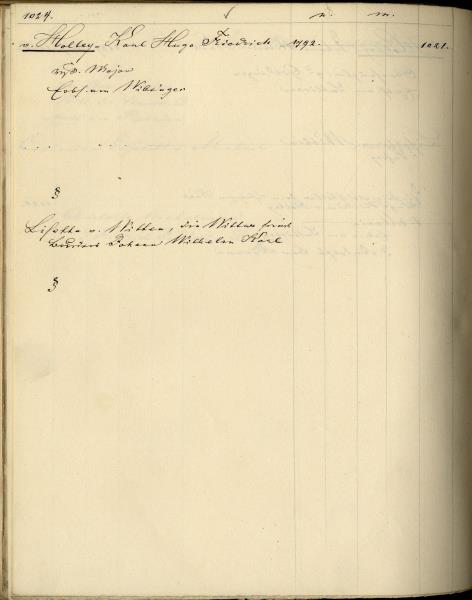 1024. n. m.
v. Holtey, Karl Hugo Friedrich 1792. 1021.
Major
Witzinger
§
v. Witten, die Wittwe
Bruders Johann Wilhelm Karl
§